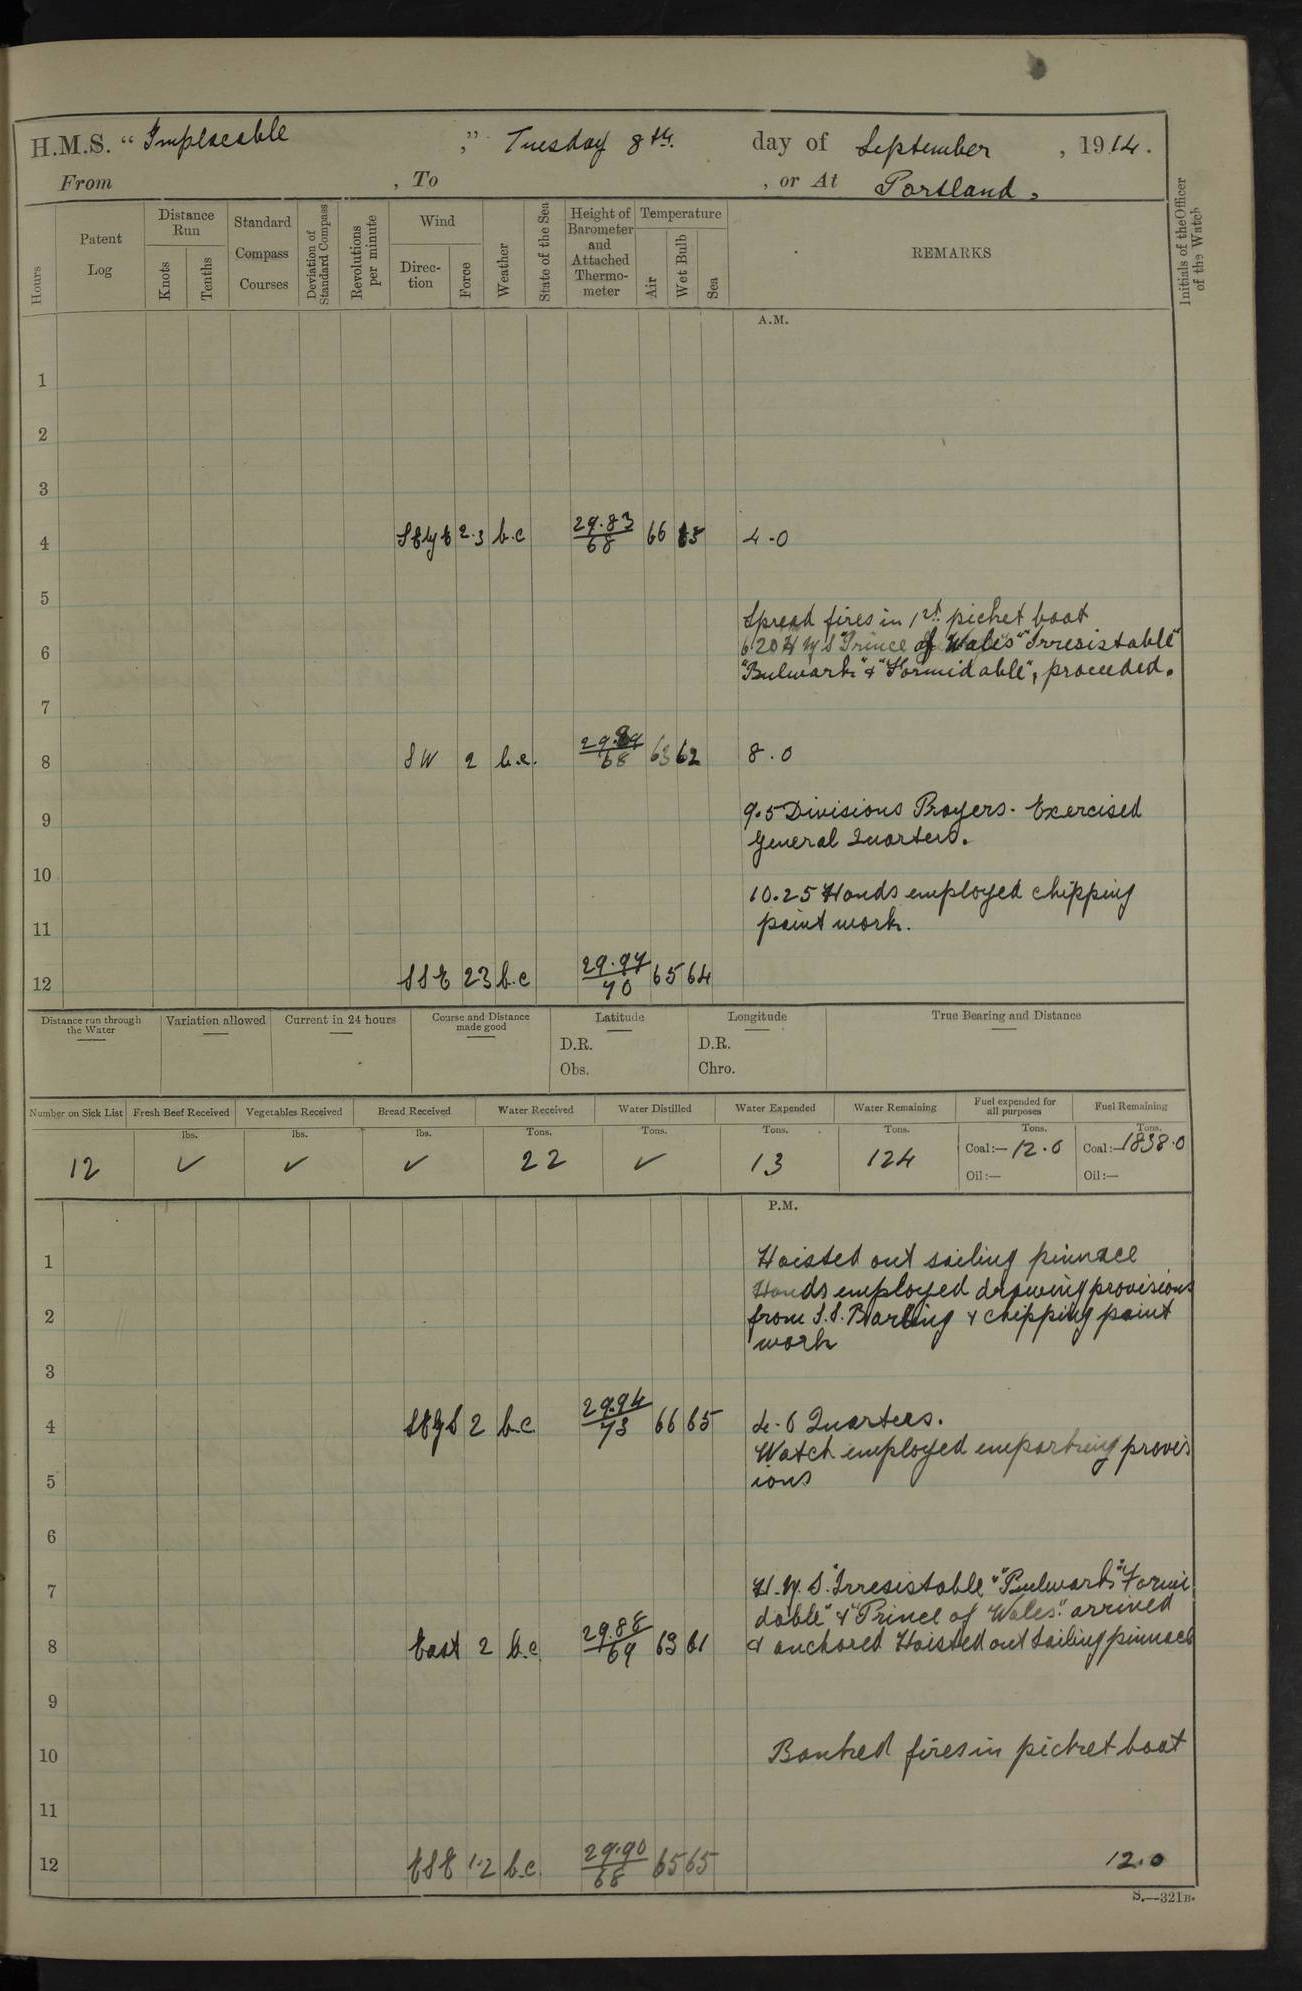 H.M.S. "Implacable ," Tuesday 8th. day of September, 1914.
From , To , or At Portland.
Hours
Patent Log
Distance Run
Knots
Tenths
Standard Compass Courses
Deviation of Standard Compass
Revolutions per minute
Wind
Direction
Force
Weather
State of the Sea
Height of Barometer and Attached Thermometer
Temperature
Air
Wet Bulb
Sea
REMARKS
Initials of the Officer of the Watch
A.M.
1
2
3
4 SEbyE 2.3 b.c 29.83/68 66 65 4.0
5
Spread fires in 1st picket boat
6 6.20 H M S "Prince of Wales" "Irresistable"
"Bulwark" & "Formidable", proceeded.
7
8 SW 2 b.c. 29.89/68 63 62 8.0
9 9.5 Divisions Prayers. Exercised
General Quarters.
10
10.25 Hands employed chipping
11 paint work.
12 SSE 23 b.c 29.97/70 65 64
Distance run through the Water
Variation allowed
Current in 24 hours
Course and Distance made good
Latitude
D.R.
Obs.
Longitude
D.R.
Chro.
True Bearing and Distance
Number on Sick List 12
Fresh Beef Received lbs. ✓
Vegetables Received lbs. ✓
Bread Received lbs. ✓
Water Received Tons. 22
Water Distilled Tons. ✓
Water Expended Tons. 13
Water Remaining Tons. 124
Fuel expended for all purposes Tons. Coal:— 12.0 Oil:—
Fuel Remaining Tons. Coal:— 1838.0 Oil:—
P.M.
1 Hoisted out sailing pinnace
Hands employed drawing provisions
2 from S.S. Barling & chipping paint
work
3
4 SEbyS 2 b.c 29.94/73 66 65 4.0 Quarters.
Watch employed embarking provis
5 ions
6
7 H.M.S. "Irresistable" "Bulwark" "Formi
dable" & "Prince of Wales" arrived
8 East 2 b.c. 29.88/69 63 61 & anchored Hoisted out sailing pinnace
9
10 Banked fires in picket boat
11
12 ESE 1.2 b.c. 29.90/68 65 65 12.0
S.—321B.